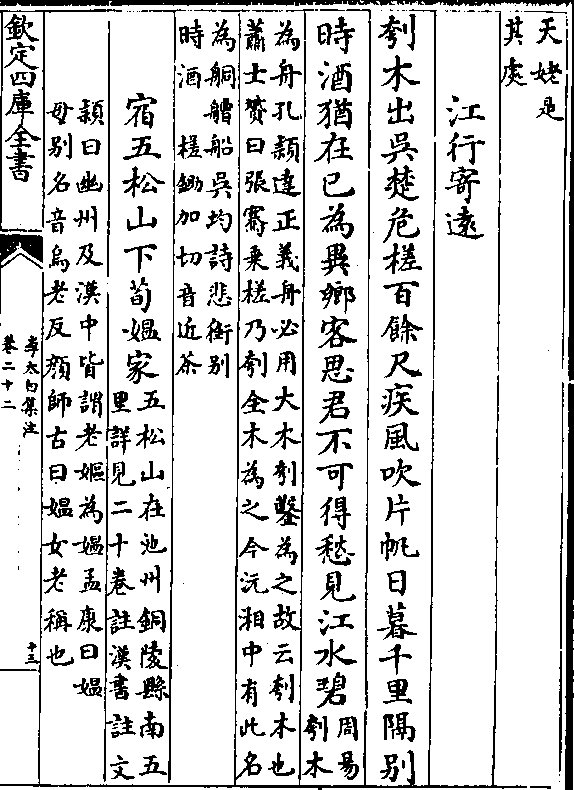 天姥是
其處
江行寄遠
刳木出吳楚危槎百餘尺疾風吹片帆日暮千里隔別
時酒猶在已為異鄉客思君不可得愁見江水碧
周易
刳木
為舟孔穎達正義舟必用大木刳鑿為之故云刳木也
蕭士贇曰張騫乗槎乃刳全木為之今沅湘中有此名
為舸艚船吳均詩悲銜别
時酒 槎鋤加切音近茶
宿五松山下荀媼家
五松山在池州銅陵縣南五
里詳見二十卷註漢書註文
穎曰幽州及漢中皆謂老嫗為媼孟康曰媼
母别名音烏老反顏師古曰媼女老稱也
欽定四庫全書
李太白集注
卷二十二
十三